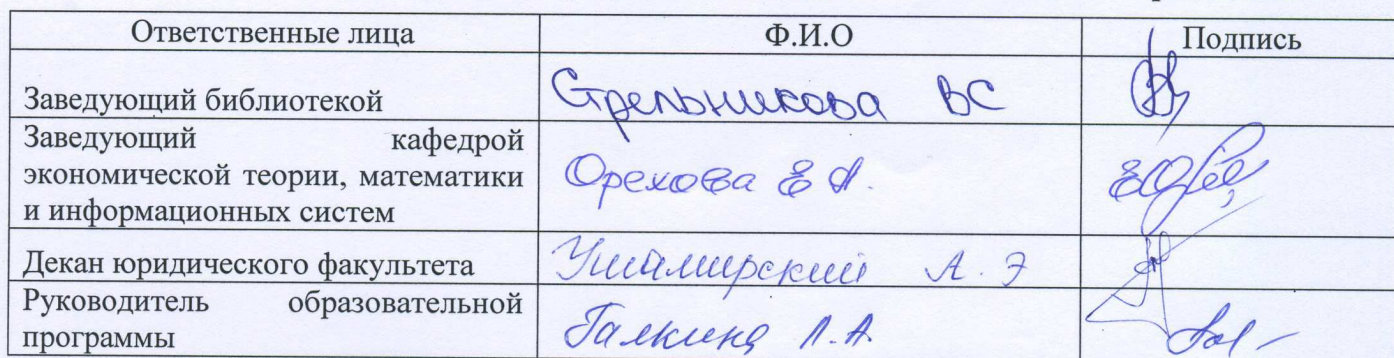 Ответственные лица Ф.И.О Подпись
Заведующий библиотекой Стрельникова ВС
Заведующий кафедрой
экономической теории, математики Орехова Е А.
и информационных систем
Декан юридического факультета А. Э
Руководитель образовательной
программы Галкина Л.А.